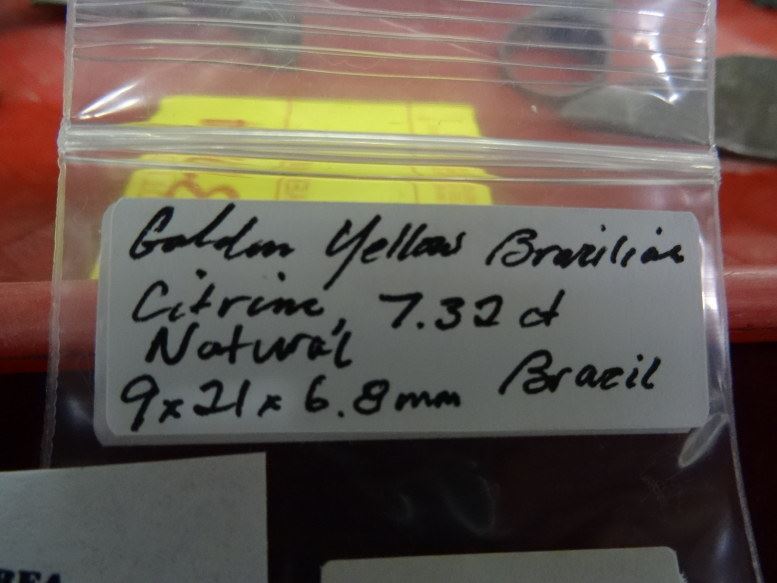 Golden Yellow Brazilian
Citrine, 7.32 ct
Natural
9x21x6.8mm Brazil